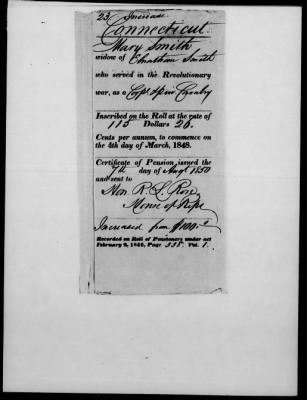 23. Increase
Connecticut.
Mary Smith
widow of Chatham Smith
who served in the Revolutionary
war, as a Corpl & priv Cavalry
Inscribed on the Roll at the rate of
115 Dollars 26
Cents per annum, to commence on
the 4th day of March, 1848.
Certificate of Pension issued the
7th day of Augt 1850
and sent to
Hon. R. L. Rose
House of Reps
Increased from $100.
Recorded on Roll of Pensioners under act
February 2, 1848, Page 358 Vol. 1.